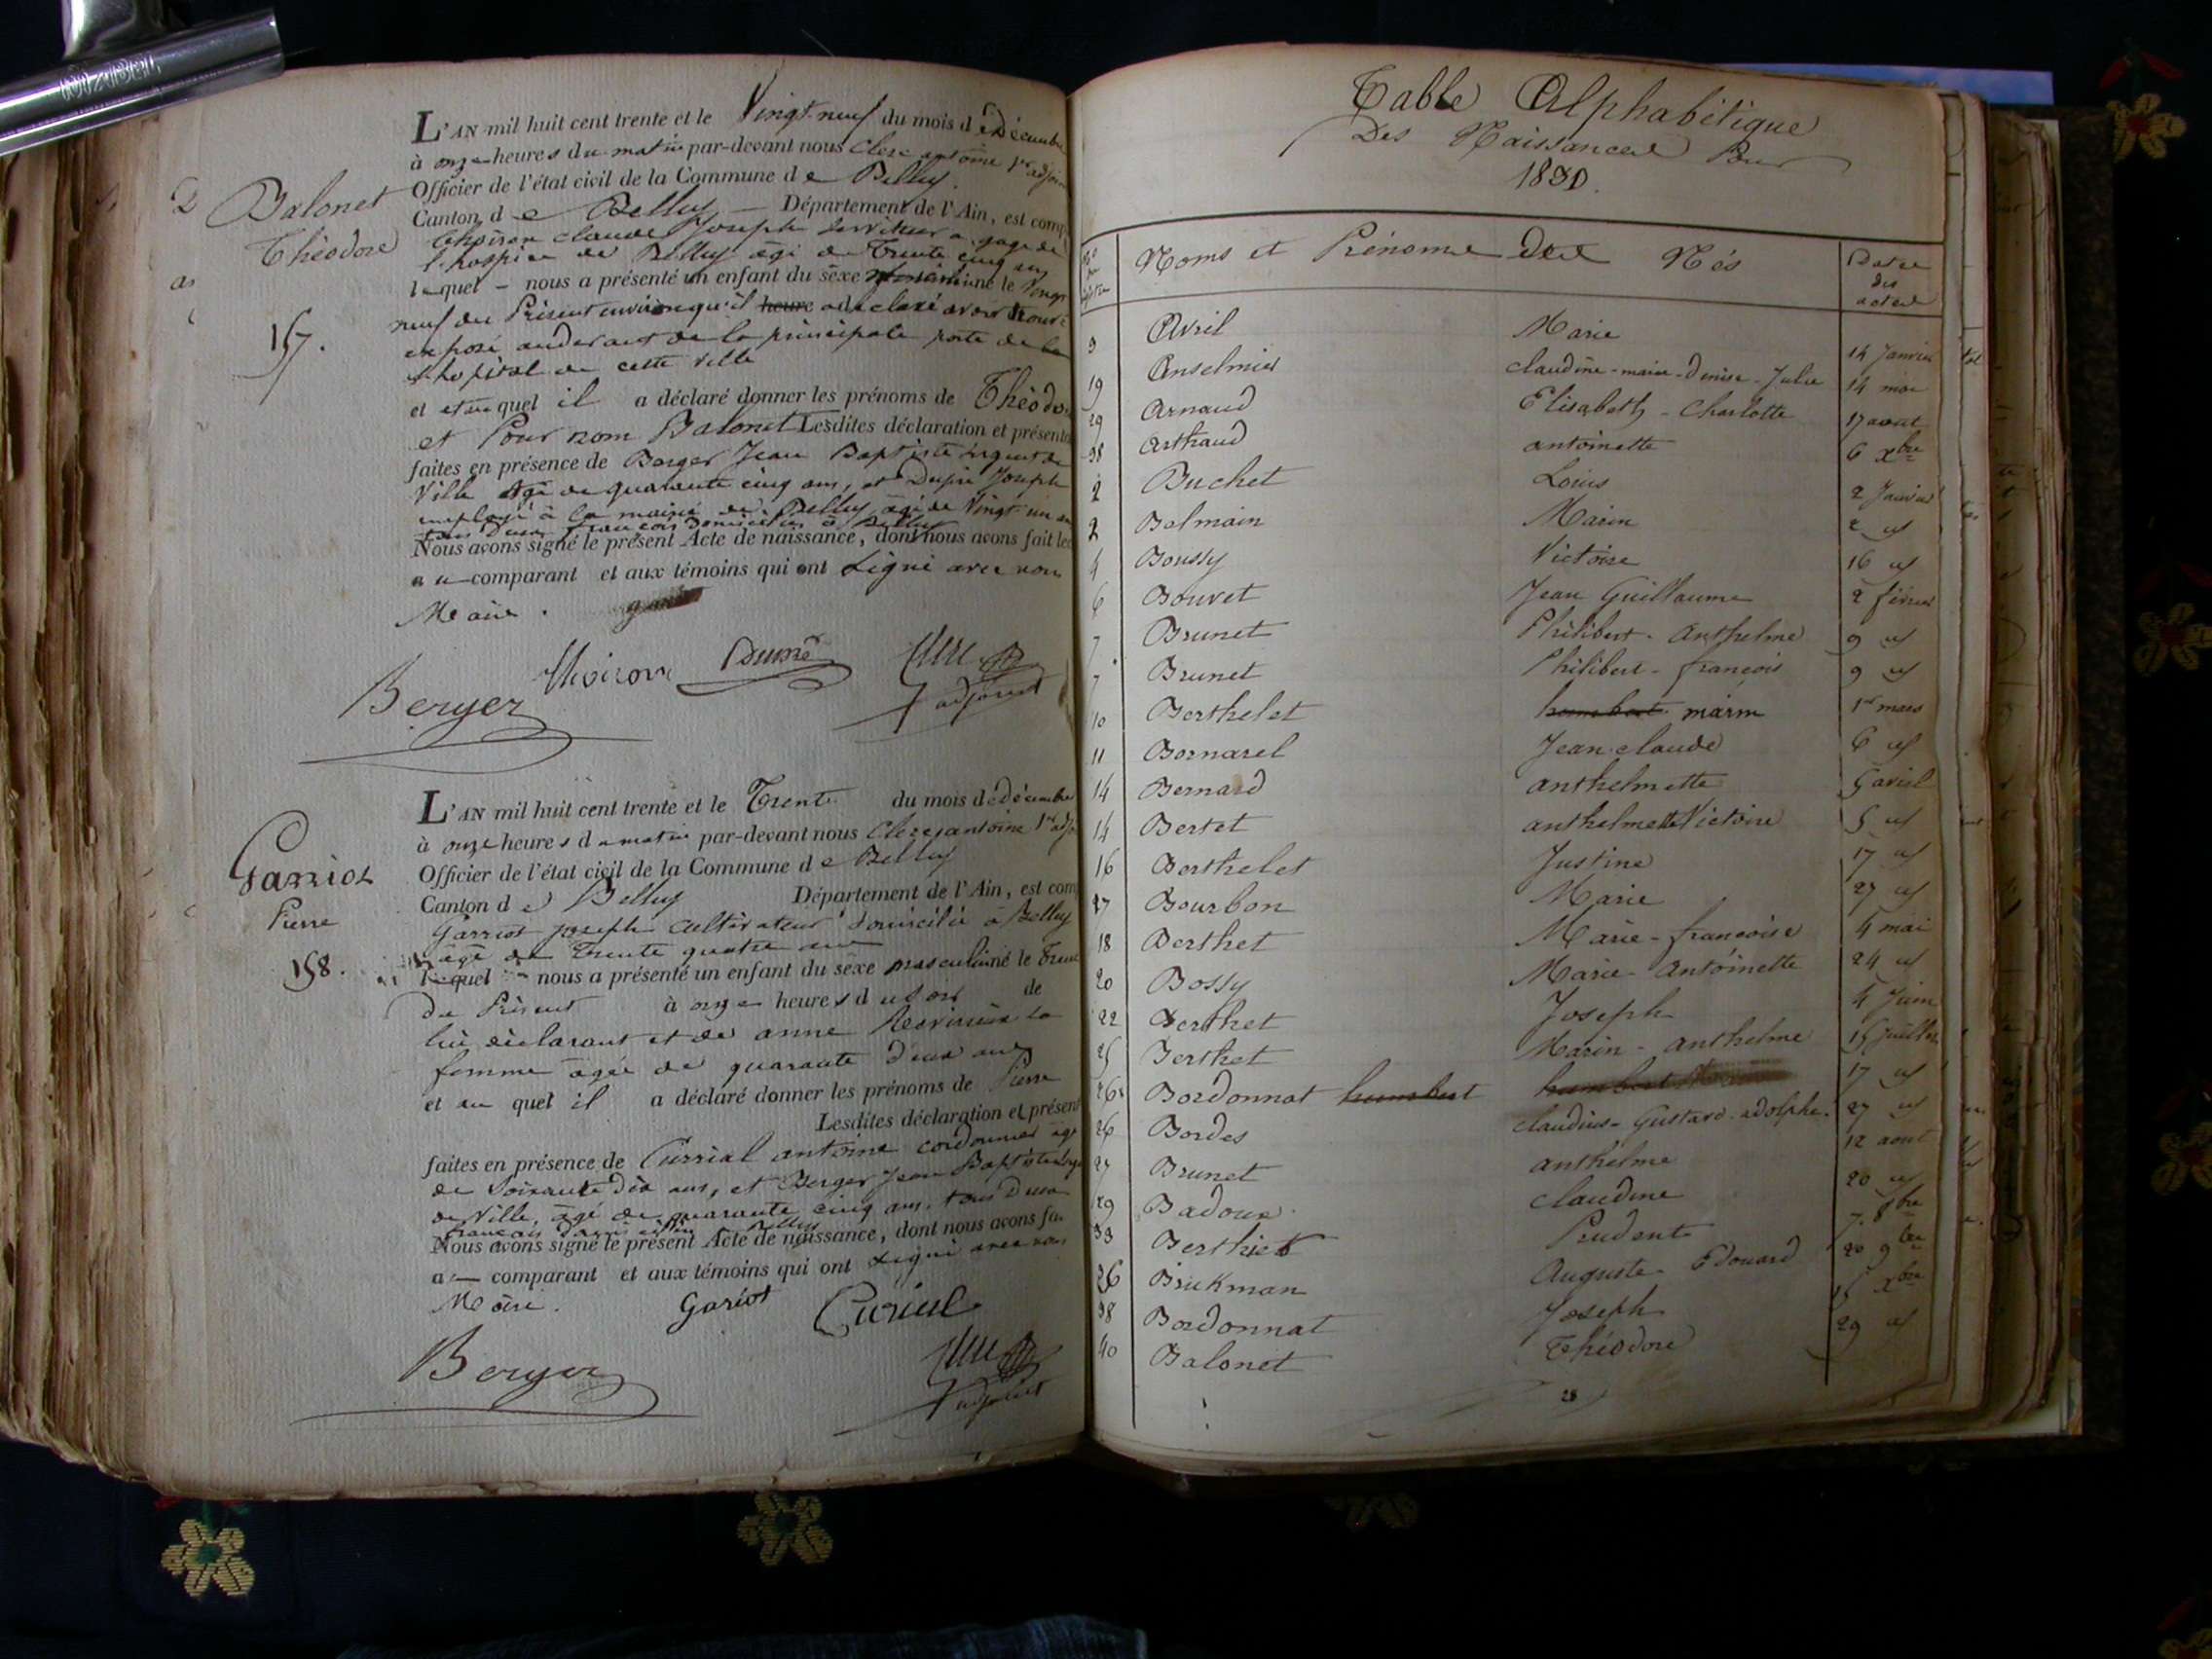 L'AN mil huit cent trente et le Vingt-neuf du mois d e décembre
à onze heures du matin par-devant nous Clerc antoine 1er adjoint
Officier de l'état civil de la Commune d e Belley.
Canton d e Belley — Département de l'Ain, est comp
Claude Joseph Serviteur à gage de
l'hospice de Belley âgé de Trente cinq ans
lequel - nous a présenté un enfant du sèxe masculin né le Vingt
neuf du Présent environ qu'il heure a déclaré avoir trouvé
exposé audevant de la principale porte de
l'hopital de cette ville
et auquel il a déclaré donner les prénoms de Théodore
et Pour nom Balonet Lesdites déclaration et présenta
faites en présence de Berger Jean Baptiste sergent de
Ville âgé de quarante cinq ans, et Joseph
employé à la mairie de Belley âgé de Vingt un ans
tous deux français domiciliés à Belley
Nous avons signé le présent Acte de naissance, dont nous avons fait lec
au comparant et aux témoins qui ont signé avec nous
Maire.
Berger
adjoint
Balonet
Théodore
157.
L'AN mil huit cent trente et le Trente du mois de décembre
à onze heures du matin par-devant nous Clerc antoine 1er adjo
Officier de l'état civil de la Commune d e Belley
Canton d e Belley Département de l'Ain, est com
Garriot joseph cultivateur domicilié à Belley
âgé de Trente quatre ans
lequel - nous a présenté un enfant du sèxe masculin né le Trente
du Présent à onze heures du soir de
lui déclarant et de anne sa
femme âgée de quarante deux ans
et au quel il a déclaré donner les prénoms de Pierre
Lesdites déclaration et présent
faites en présence de Currial antoine cordonnier âgé
de Soixante Dix ans, et Berger Jean Baptiste
de Ville, âgé de quarante cinq ans, tous deux
français Belley
Nous avons signé le présent Acte de naissance, dont nous avons fa
au — comparant et aux témoins qui ont signé avec nous
Maire. Gariot Curial
Berger
adjoint
Garriot
Pierre
158.
Table Alphabétique
Des Naissances Pour
1830.
Noms et Prénoms des Nés Dates des actes
9 Avril Marie 14 Janvier
19 Anselmier claudine-marie-Denise-Julie 14 mai
29 Arnaud Elisabeth-Charlotte 17 aout
38 Arthaud antoinette 6 xbre
2 Buchet Louis 2 Janvier
2 Belmain Marin 2 id
4 Boussy Victoire 16 id
6 Bouvet Jean Guillaume 2 février
7 Brunet Philibert-Anthelme 9 id
7 Brunet Philibert-françois 9 id
10 Berthelet humbert marin 1er mars
11 Bornarel Jean claude 6 id
14 Bernard anthelmette 5 avril
14 Bertet anthelmette Victoire 5 id
16 Berthelet Justine 17 id
17 Bourbon Marie 27 id
18 Berthet Marie-françoise 4 mai
20 Bossy Marie-Antoinette 24 id
22 Berthet Joseph 4 Juin
25 Berthet Marin-anthelme 15 Juillet
26 Bordonnat humbert humbert 17 id
26 Bordes claudius-Gustave-adolphe. 27 id
27 Brunet anthelme 12 aout
29 Badoux claudine 20 id
33 Berthier Prudent 7. 8bre
36 Brukman Auguste-Edouard 20 9bre
38 Bordonnat Joseph 15 xbre
40 Balonet Théodore 29 id
28